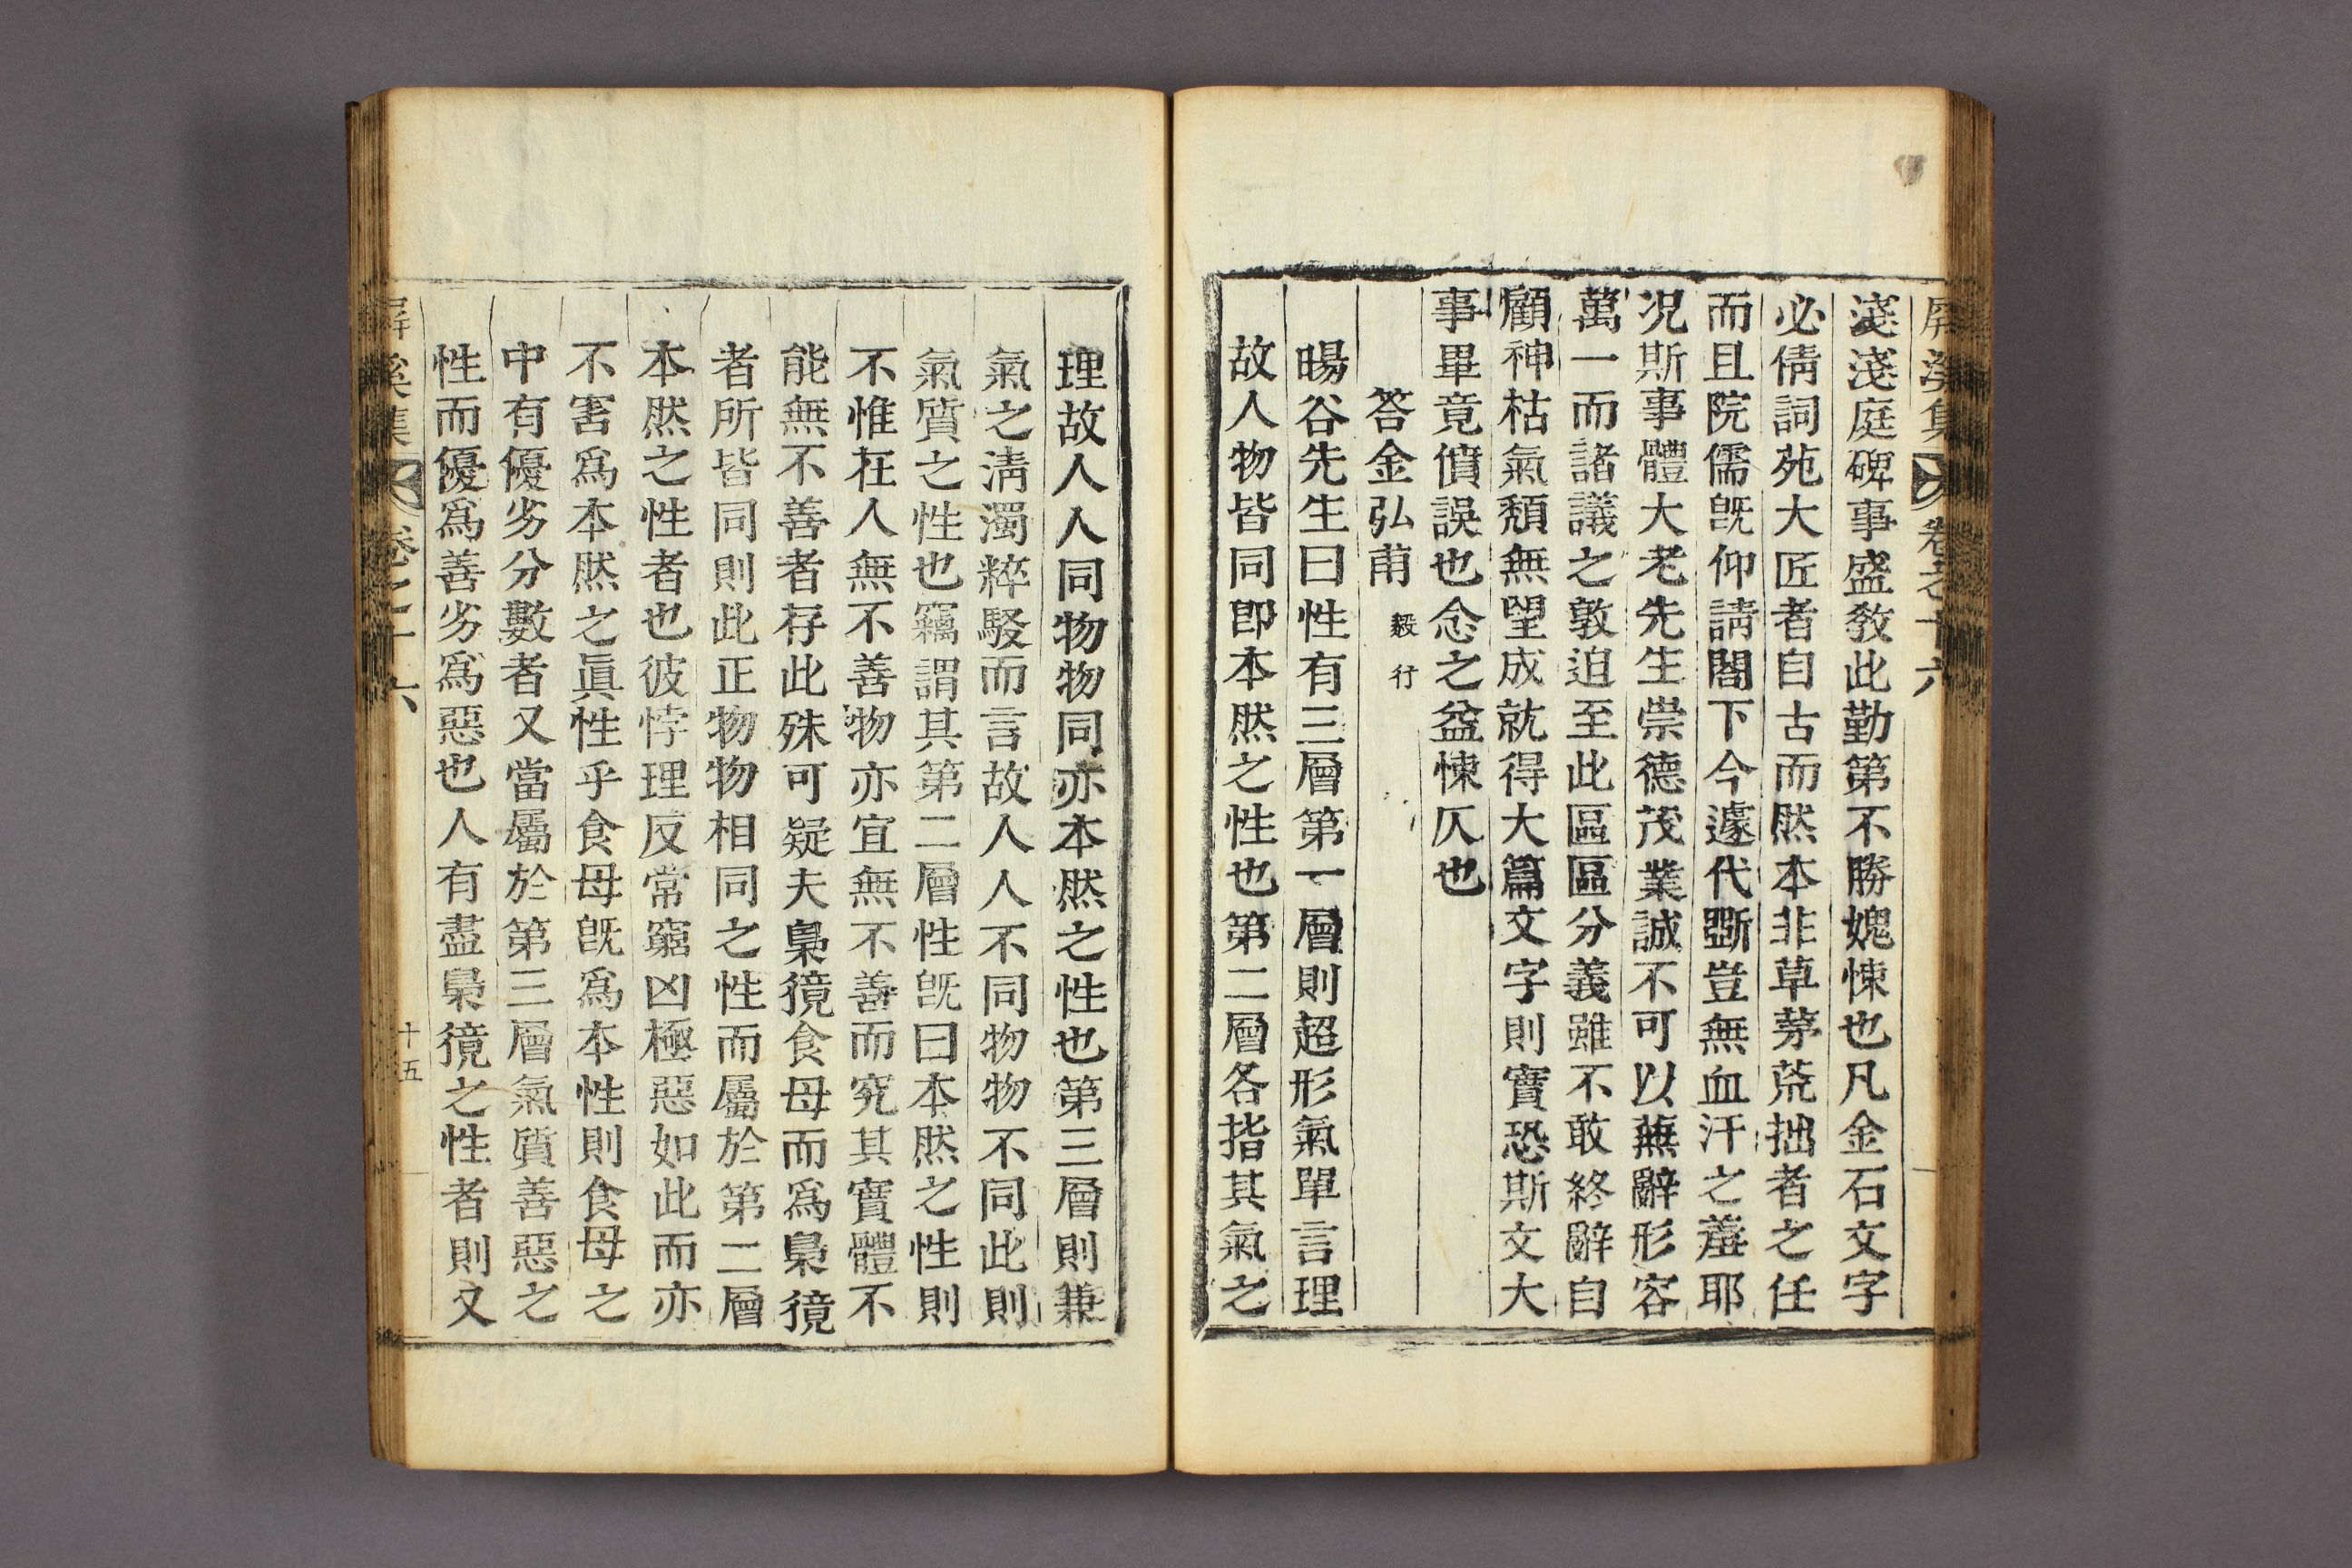 屏溪集 卷之十六
淺淺庭碑事盛敎此勤第不勝媿悚也凡金石文字
必倩詞苑大匠者自古而然本非草茅荒拙者之任
而且院儒旣仰請閤下今遽代斲豈無血汗之羞耶
况斯事體大老先生崇德茂業誠不可以蕪辭形容
萬一而諸議之敦迫至此區區分義雖不敢終辭自
顧神枯氣頹無望成就得大篇文字則實恐斯文大
事畢竟僨誤也念之益悚仄也
答金弘甫 毅行
暘谷先生曰性有三層第一層則超形氣單言理
故人物皆同卽本然之性也第二層各指其氣之
理故人人同物物同亦本然之性也第三層則兼
氣之淸濁粹駁而言故人人不同物物不同此則
氣質之性也竊謂其第二層性旣曰本然之性則
不惟在人無不善物亦宜無不善而究其實體不
能無不善者存此殊可疑夫梟獍食母而爲梟獍
者所皆同則此正物物相同之性而屬於第二層
本然之性者也彼悖理反常窮凶極惡如此而亦
不害爲本然之眞性乎食母旣爲本性則食母之
中有優劣分數者又當屬於第三層氣質善惡之
性而優爲善劣爲惡也人有盡梟獍之性者則又
屏溪集 卷之十六 十五